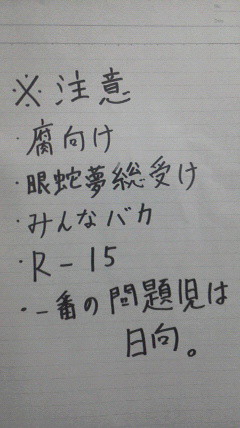 ※注意
・腐向け
・眼蛇夢総受け
・みんなバカ
・R-15
・一番の問題児は
日向。